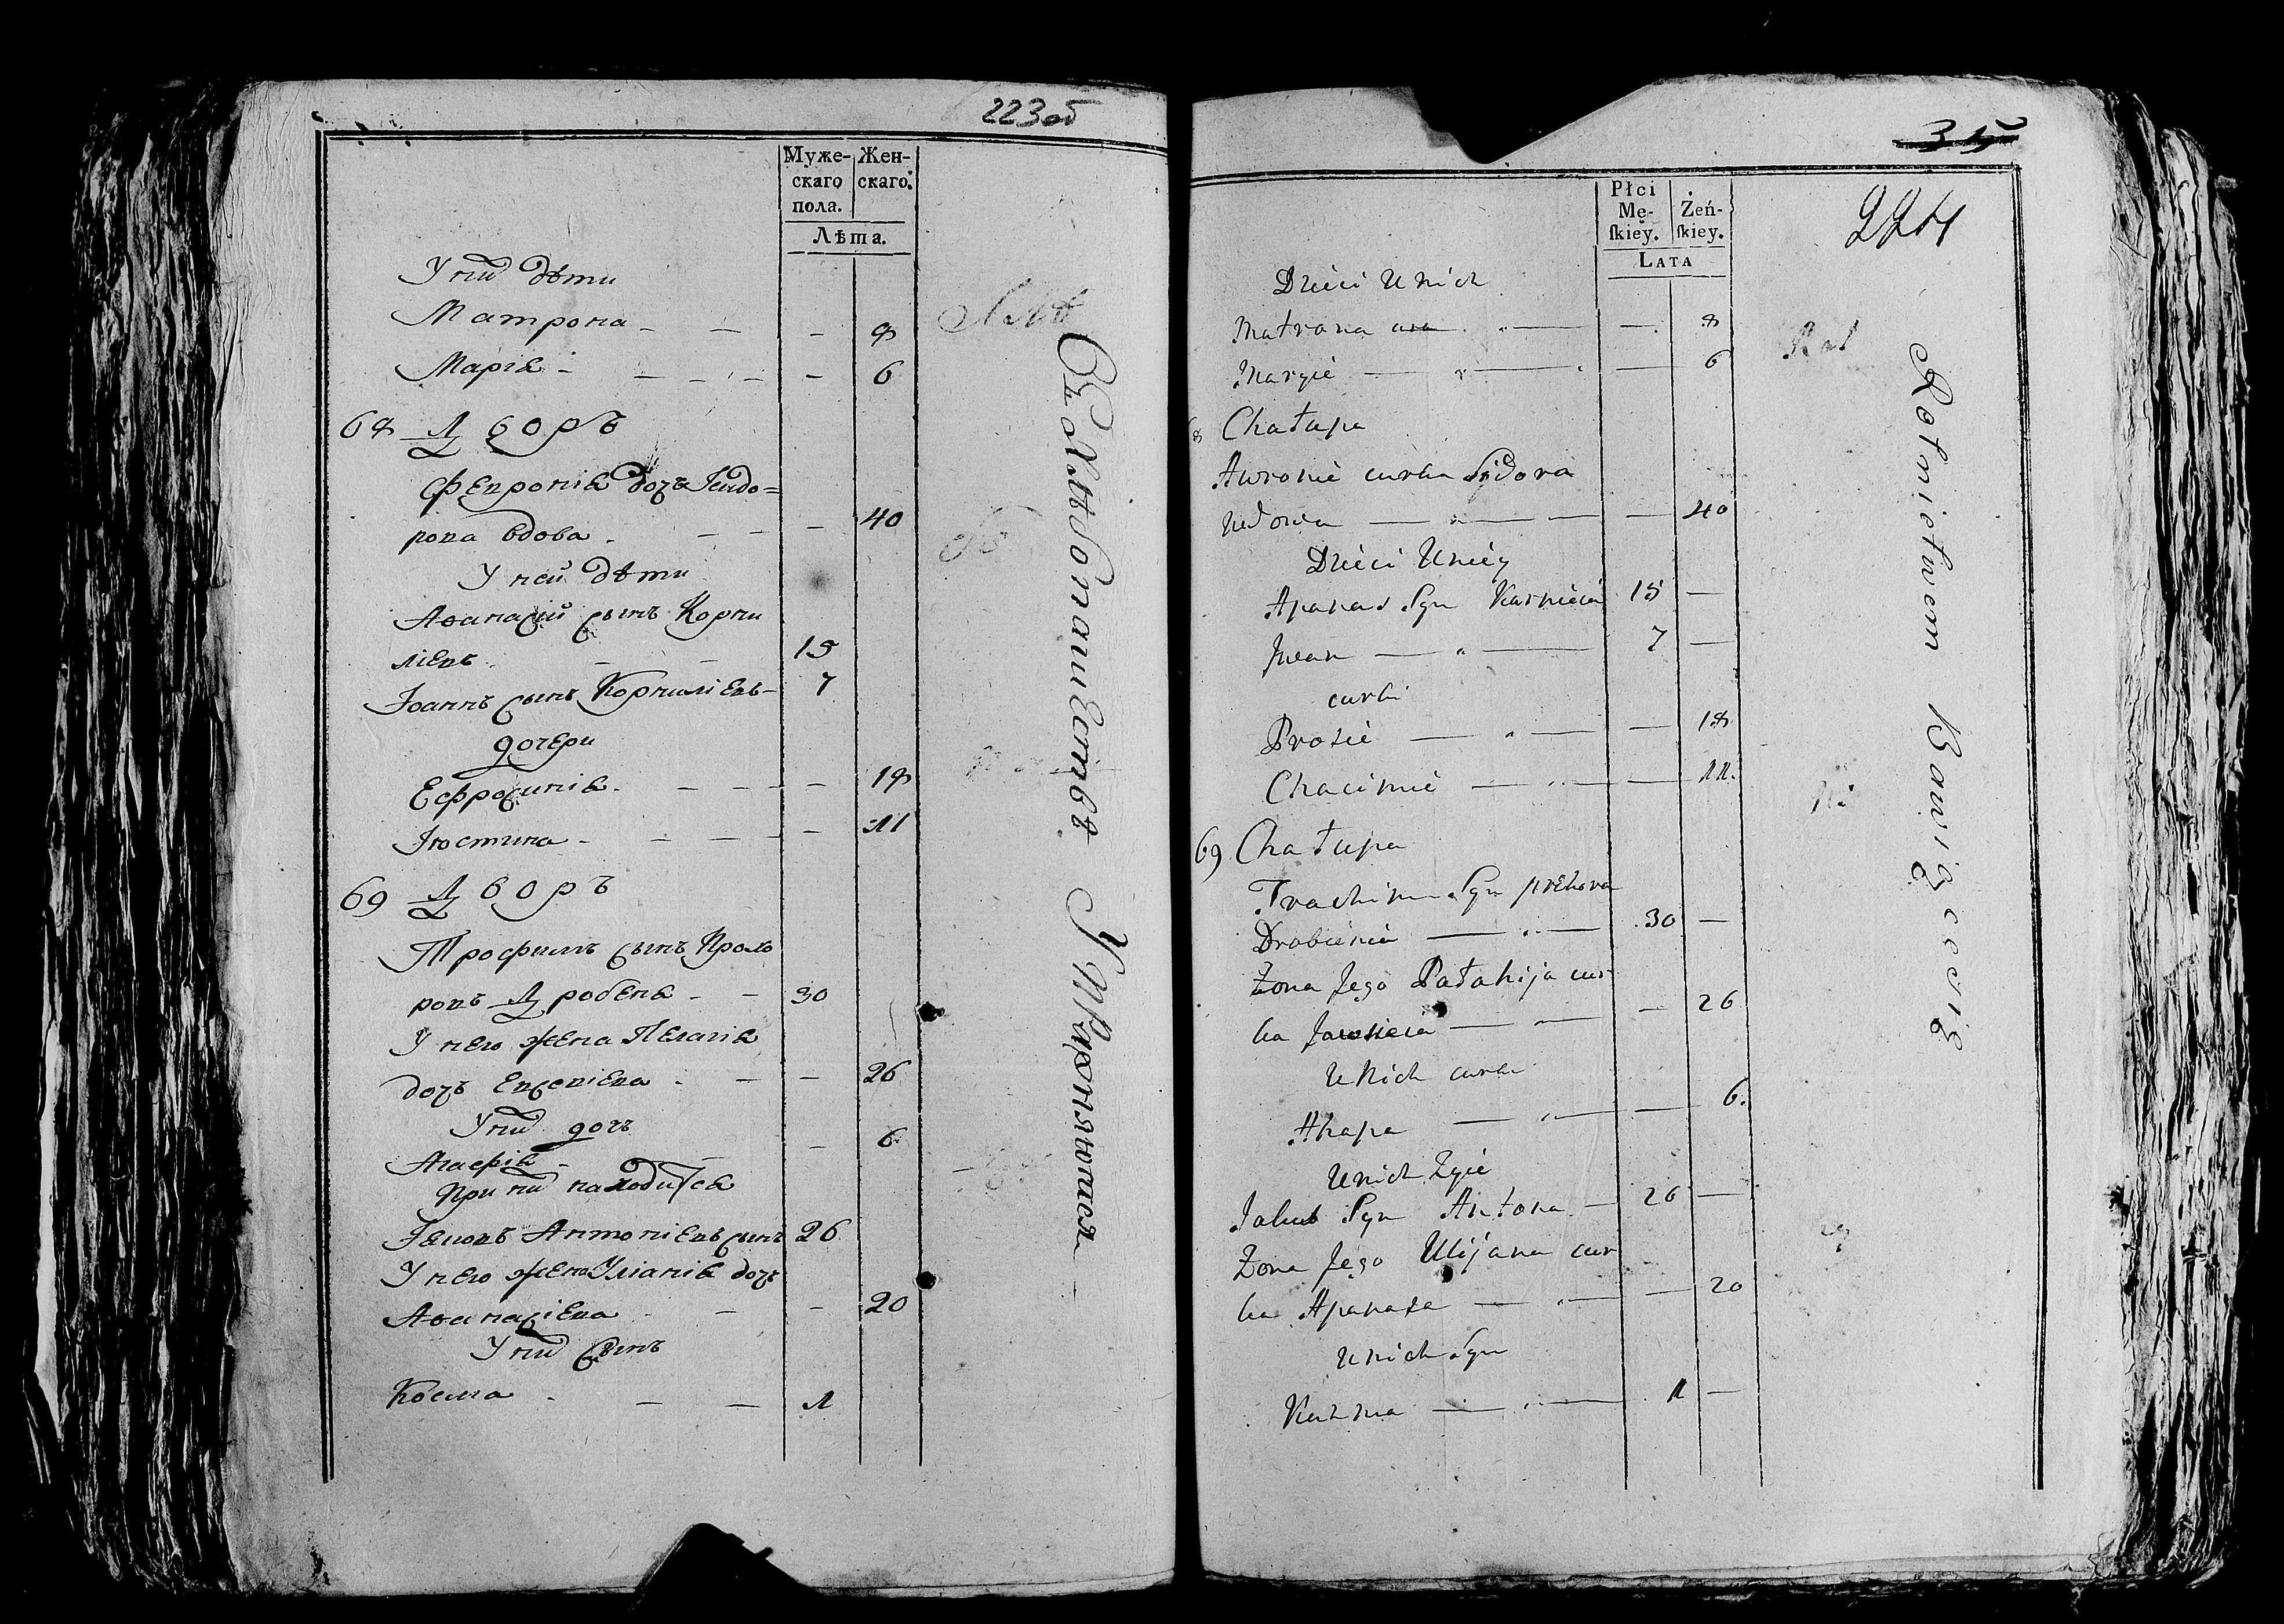 223об
Муже-
скаго
пола.
Жен-
скаго.
Лѣта.
У них дѣти
Матрона - - - 8
Марія - - - - - 6
68 Дворъ
Февронія дочь Ісидо=
рова вдова - - - - 40
У ней дѣти
Аѳанасій сынъ Корни
ліевъ - - 15
Іоаннъ сынъ Корниліевъ - 7
дочери
Ефросинія - - - - 18
Іюстина - - - - 11
69 Дворъ
Трофимъ сынъ Прохо
ровъ Дробеня - - 30
У него жена Пелагія
дочь Евсевіева - - - 26
У них дочь
Агафія - - - 6
При них находится
Іаковъ Антоніевъ сынъ 26
У него жена Уліанія дочь
Аѳанасіева - - - 20
У них сынъ
Косма - - - 1
Въ Хлѣбопашествѣ Упражняются
3
224
Płci
Mę-
ſkiey.
Żeń-
ſkiey.
LATA
Dzieci U nich
Matrona - - 8
Maryie - - 6
8 Chałupa
Awronie curka Sydora
wdowa - - 40
Dzieci U niey
Apanas Syn Karnieia 15 -
Jwan - 7 -
curki
Prosie - - 18
Chacimie - - 11.
69 Chałupa
Trachim Syn prehora
Drobienia - 30 -
Żona Jego Pałahija cur
ka Jawsieia - - 26
U nich curka
Ahapa - - 6.
U nich Zyie
Jakub Syn Antona - 26 -
Żona Jego Ulijana cur
ka Apanasa - - 20
U nich Syn
Kuzma - 1 -
Rolnictwem Bawią się